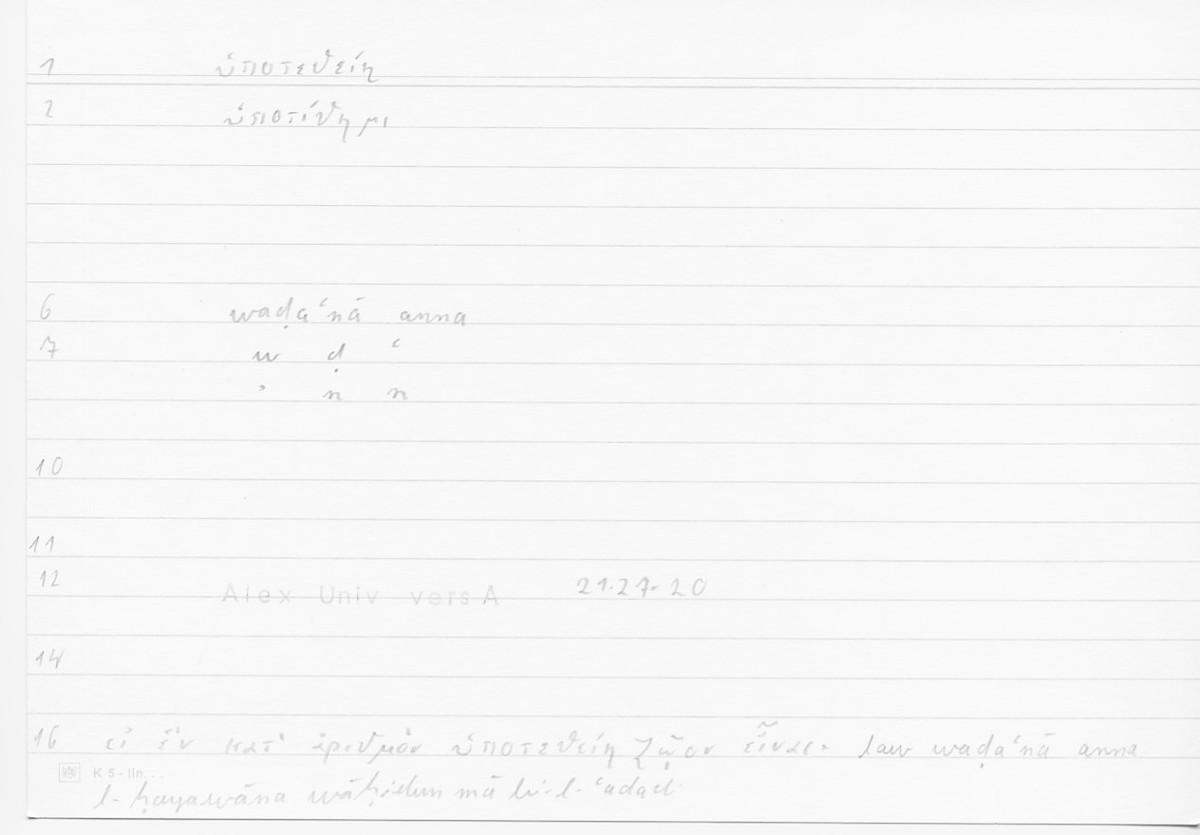 1 ὑποτεθείη
2 ὑποτίθημι
6 waḍaʿnā anna
7 w ḍ ʿ
ʾ n n
10
11
12 Alex Univ vers A 21.27-20
14
16 εἰ ἓν κατ' ἀριθμὸν ὑποτεθείη ζῷον εἶναι. law waḍaʿnā anna
K 5-lin...
l-ḥayawāna wāḥidun mā bi-l-ʿadad